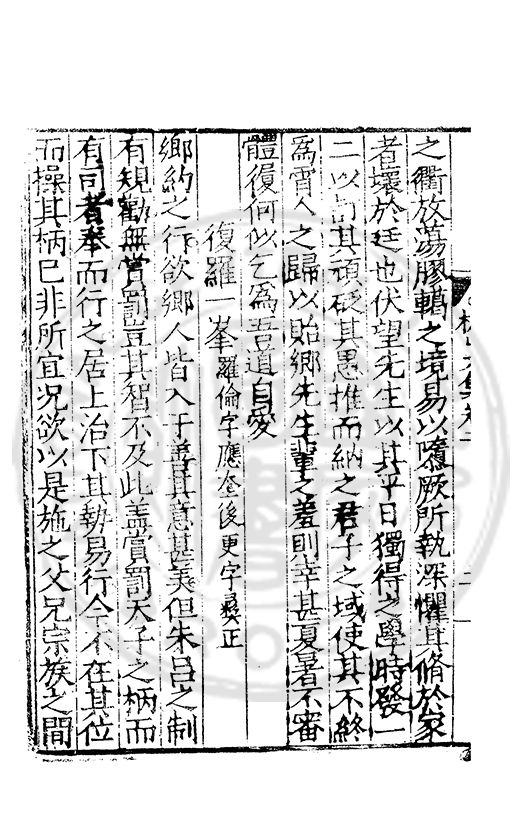 之衢放蕩膠轕之境易以隳厥所執深懼其脩於家
者壞於廷也伏望先生以其平日獨得之學時發一
二以訂其頑砭其愚推而納之君子之域使其不終
爲宵人之歸以貽鄉先生輩之羞則幸甚夏暑不審
體復何似乞爲吾道自愛
復羅一峯羅倫字應奎後更字彛正
鄉約之行欲鄉人皆入于善其意甚美但朱呂之制
有規勸無賞罰豈其智不及此盖賞罰天子之柄而
有司者奉而行之居上治下其勢易行今不在其位
而操其柄已非所宜况欲以是施之父兄宗族之間